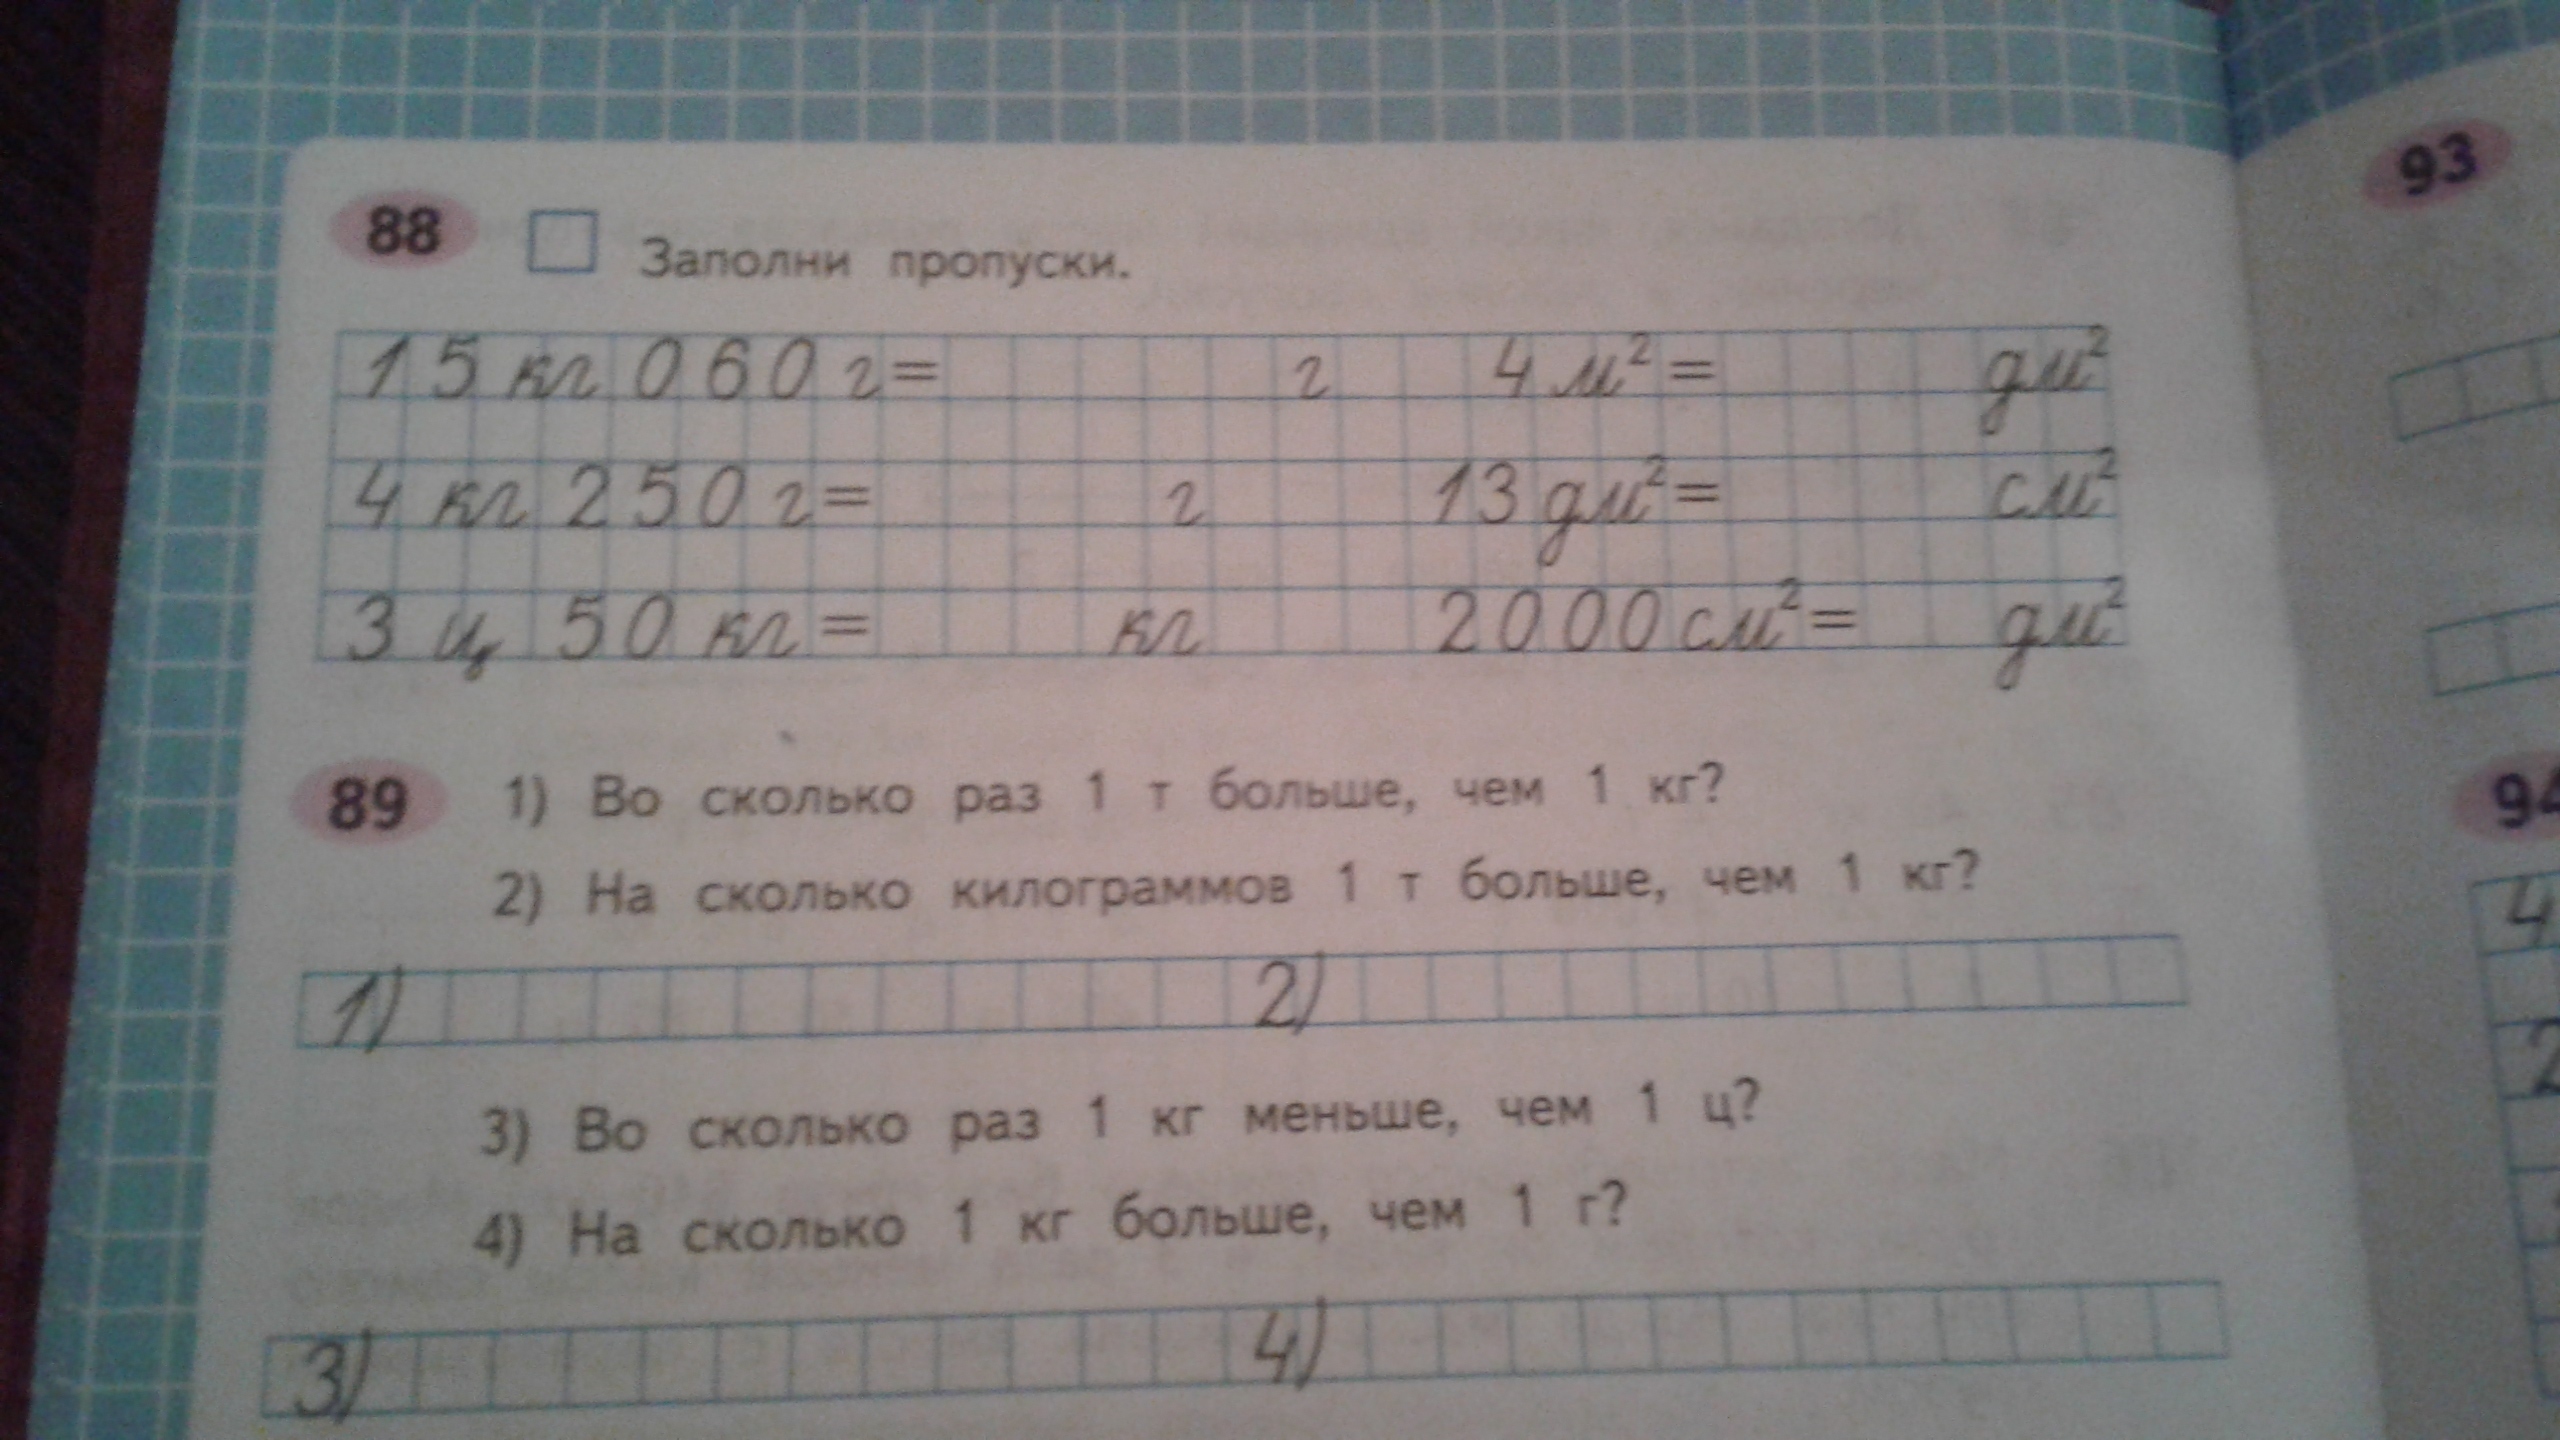 88 Заполни пропуски.
15 кг 060 г= г 4 м²= дм²
4 кг 250 г= г 13 дм²= см²
3 ц 50 кг= кг 2000 см²= дм²
89 1) Во сколько раз 1 т больше, чем 1 кг?
2) На сколько килограммов 1 т больше, чем 1 кг?
1) 2)
3) Во сколько раз 1 кг меньше, чем 1 ц?
4) На сколько 1 кг больше, чем 1 г?
3) 4)
93
94
4
2